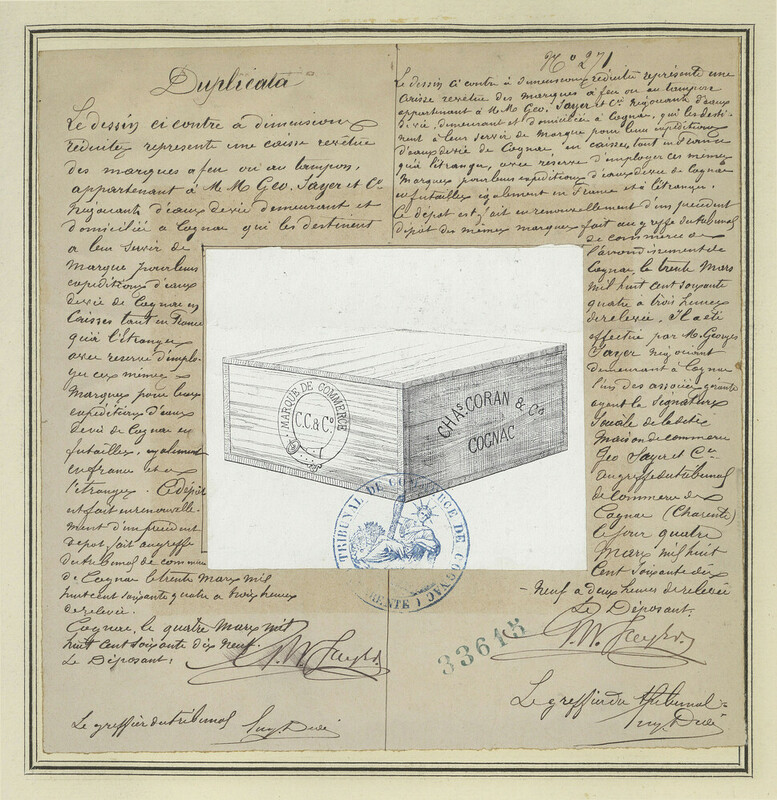 Duplicata
Le dessin ci contre à dimensions
réduites represente une caisse revêtue
des marques a feu ou au tampon,
appartenant à M M Geo. Sayer et Cie
Négociants d'eaux de vie demeurant et
domiciliés a Cognac qui les destinent
a leur servir de
Marque pour leurs
expeditions d'eaux
de vie de Cognac en
Caisses tant en France
qu'à l'étranger
avec reserve d'emplo-
yer ces mêmes
Marques pour leurs
expeditions d'eaux
de vie de Cognac en
futailles, egalement
en france et a
l'étranger. Ce dépôt
est fait en renouvelle-
ment d'un précédent
depot fait au greffe
du tribunal de commerce
de Cognac le trente Mars mil
huit cent soixante quatre a trois heures
de relevée.
Cognac, le quatre Mars mil
huit cent soixante dix neuf.
Le Déposant,
Le greffier du tribunal
No 271
Le dessin ci contre à dimensions réduites représente une
Caisse revêtue des marques à feu ou au tampon
appartenant à M M Geo. Sayer et Cie Négociants d'eaux
de vie, demeurant et domiciliés à Cognac, qui les desti-
nent à leur servir de marque pour leurs expéditions
d'eaux de vie de Cognac en caisses tant en France
qu'à l'étranger, avec réserve d'employer ces mêmes
Marques pour leurs expéditions d'eaux de vie de Cognac
en futailles également en France et à l'étranger.
Le dépôt est fait en renouvellement d'un précédent
dépôt des mêmes marques fait au greffe du tribunal
de commerce de
l'arrondissement de
Cognac, le trente Mars
mil huit cent soixante
quatre à trois heures
de relevée. Il a été
effectué par M. Georges
Sayer négociant
demeurant à Cognac
l'un des associés gérants
ayant la signature
Sociale de la dite
Maison de commerce
Geo Sayer et Cie
au greffe du tribunal
de Commerce de
Cognac (Charente)
le jour quatre
Mars mil huit
Cent soixante dix
-neuf a deux heures de relevée
Le Déposant.
Le greffier du tribunal
MARQUE DE COMMERCE
C.C. & Co
CHAs. CORAN & Co
COGNAC
TRIBUNAL DE COMMERCE DE COGNAC (CHARENTE)
33615